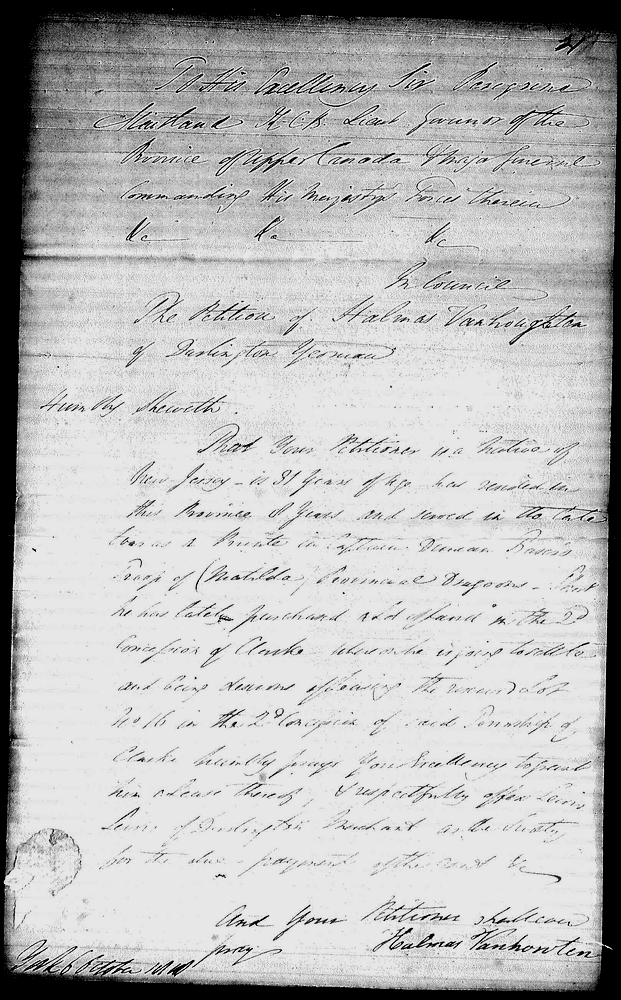 To His Excellency Sir Peregrine
Maitland K.C.B. Lieut Govenor of the
Province of Upper Canada & Major General
Commanding His Majestys Forces therein
&c &c &c
In Council
The Petition of Halmas Vanhoughten
of Darlington Yeoman
Humbly Sheweth.
That Your Petitioner is a Native of
New Jersey - is 31 Years of age has resided in
this Province 8 Years and served in the late
war as a Private in Captain Duncan
Troop of (Matilda) Provincial Dragoons - That
he has lately purchased a Lot of Land in the 2d
Concession of Clarke - where he is going to settle
and being desirous of leasing the reserved Lot
No 16 in the 2d Concession of said Township of
Clarke humbly prays Your Excellency to grant
him a Lease thereof, & respectfully offers
Lewis of Darlington Merchant as the Surety
for the due payment of the rent &c
And Your Petitioner shall ever
pray
Halmas Vanhowten
York 6 October